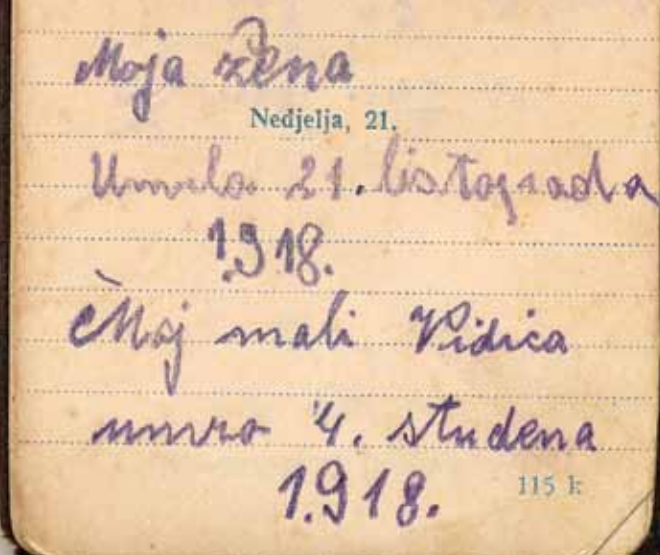 Moja žena
Nedjelja, 21.
Umrla 21. listopada
1918.
Moj mali Vidica
umro 4. studena
1.918.
115 k